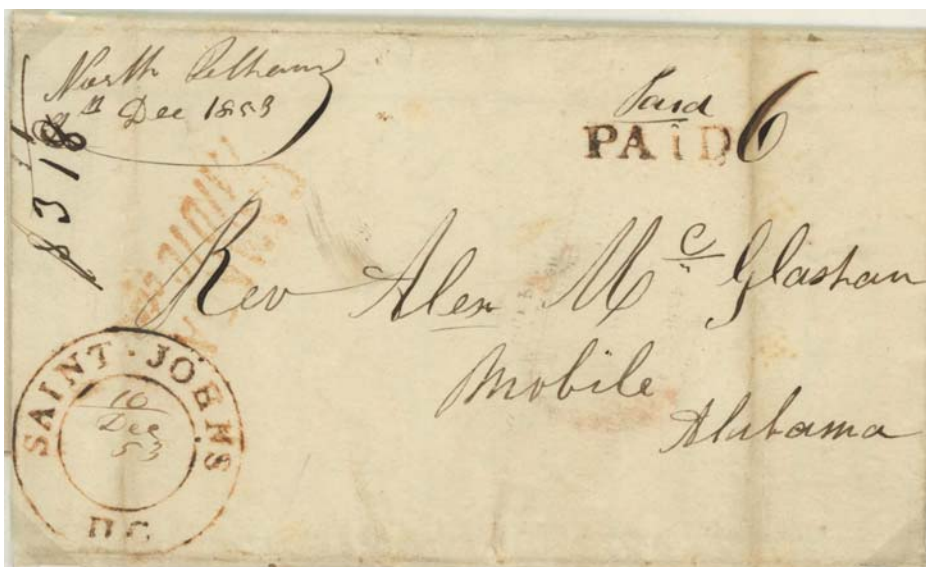 North Pelham
Dec 1853
Paid
PAID 6
Rev Alex Mc Glashan
Mobile
Alabama
SAINT·JOHNS
10
Dec
53
U.C.